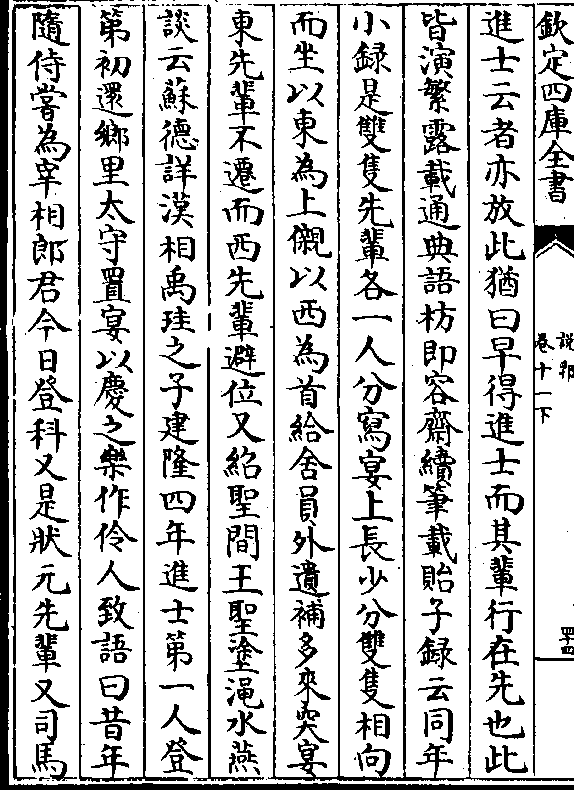 欽定四庫全書
說郛
卷十一下
四十四
進士云者亦放此猶曰早得進士而其輩行在先也此
皆演繁露載通典語枋即容齋續筆載貽子録云同年
小録是雙隻先輩各一人分寫宴上長少分雙隻相向
而坐以東為上儭以西為首給舍員外遺補多來突宴
東先輩不遷而西先輩避位又紹聖間王聖塗渑水燕
談云蘇德詳漢相禹珪之子建隆四年進士第一人登
第初還鄉里太守置宴以慶之樂作伶人致語曰昔年
隨侍嘗為宰相郎君今日登科又是狀元先輩又司馬